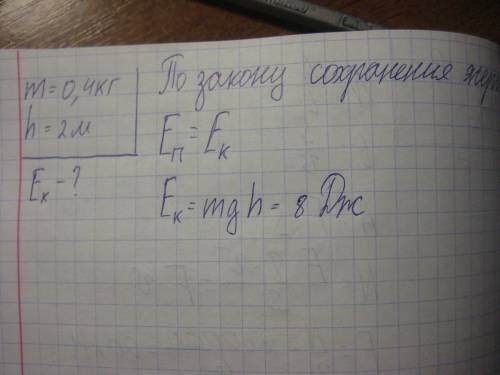 m = 0,4 кг
h = 2 м
Eк - ?
По закону сохранения
Eп = Eк
Eк = mgh = 8 Дж